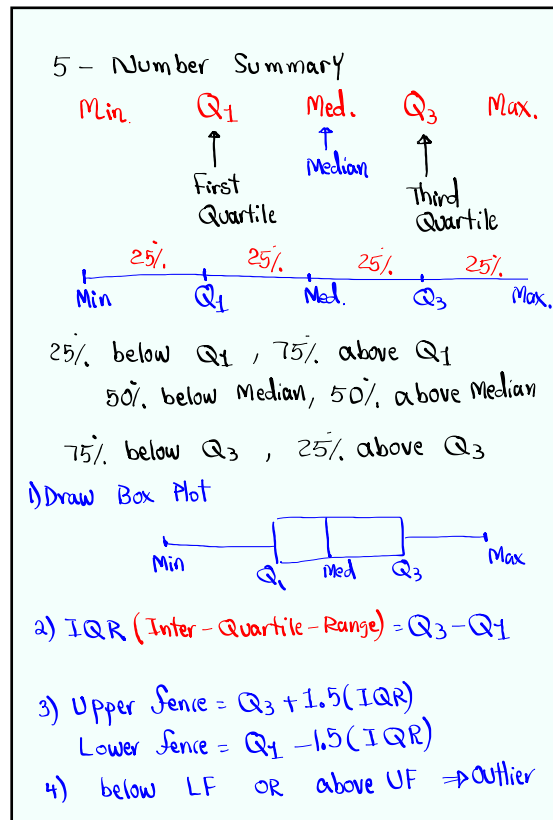 5 - Number Summary
Min. Q1 Med. Q3 Max.
First Quartile
Median
Third Quartile
25% 25% 25% 25%
Min Q1 Med. Q3 Max.
25% below Q1 , 75% above Q1
50% below Median, 50% above Median
75% below Q3 , 25% above Q3
1) Draw Box Plot
Min Q1 Med Q3 Max
2) IQR (Inter-Quartile-Range) = Q3 - Q1
3) Upper fence = Q3 + 1.5(IQR)
Lower fence = Q1 - 1.5(IQR)
4) below LF OR above UF ⇒ Outlier